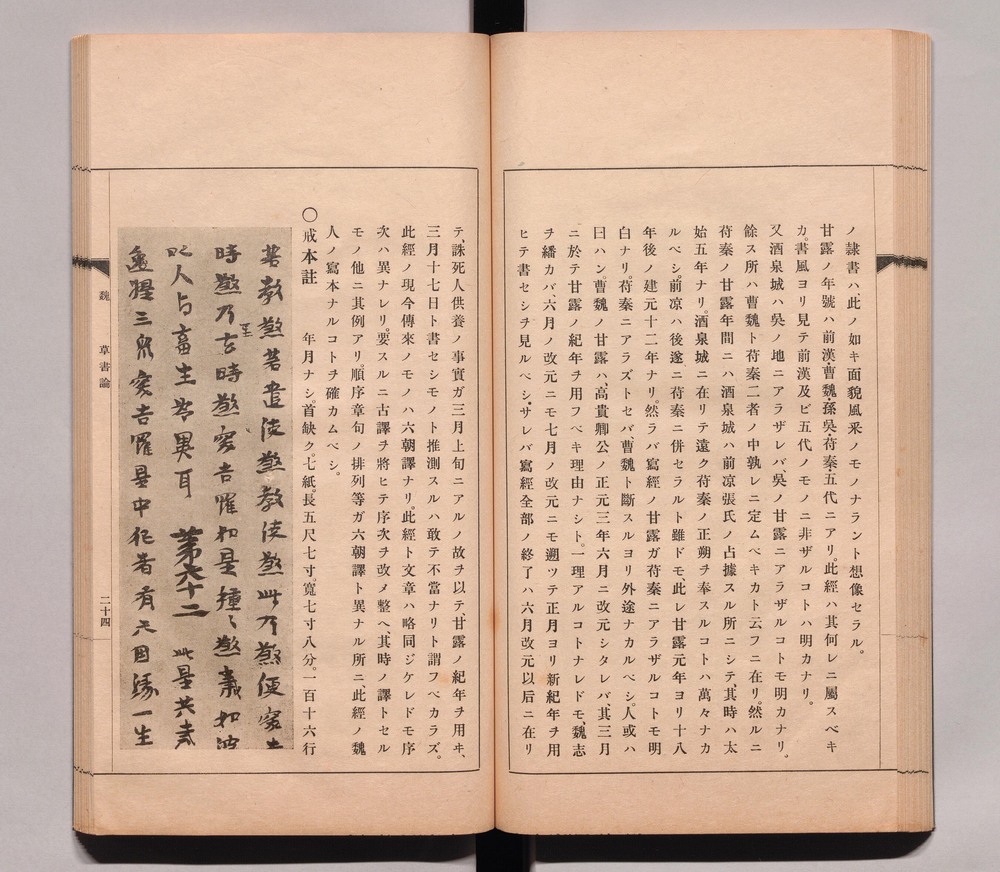 ノ隷書ハ此ノ如キ面貌風采ノモノナラント想像セラル。
甘露ノ年號ハ前漢・曹魏・孫吳・苻秦・五代ニアリ。此經ハ其何レニ屬スベキ
カ。書風ヨリ見テ前漢及ビ五代ノモノニ非ザルコトハ明カナリ。
又酒泉城ハ吳ノ地ニアラザレバ、吳ノ甘露ニアラザルコトモ明カナリ。
餘ス所ハ曹魏ト苻秦二者ノ中孰レニ定ムベキカト云フニ在リ。然ルニ
苻秦ノ甘露年間ニハ酒泉城ハ前凉張氏ノ占據スル所ニシテ、其時ハ太
始五年ナリ。酒泉城ニ在リテ遠ク苻秦ノ正朔ヲ奉スルコトハ萬々ナカ
ルベシ。前凉ハ後遂ニ苻秦ニ併セラルト雖ドモ、此レ甘露元年ヨリ十八
年後ノ建元十二年ナリ。然ラバ寫經ノ甘露ガ苻秦ニアラザルコトモ明
白ナリ。苻秦ニアラズトセバ、曹魏ト斷スルヨリ外途ナカルベシ。人或ハ
曰ハン。曹魏ノ甘露ハ、高貴卿公ノ正元三年六月ニ改元シタレバ、其三月
ニ於テ甘露ノ紀年ヲ用フベキ理由ナシト。一理アルコトナレドモ、魏志
ヲ繙カバ、六月ノ改元ニモ七月ノ改元ニモ遡ツテ正月ヨリ新紀年ヲ用
ヒテ書セシヲ見ルベシ。サレバ寫經全部ノ終了ハ六月改元以后ニ在リ
テ、誅死人供養ノ事實ガ三月上旬ニアルノ故ヲ以テ、甘露ノ紀年ヲ用ヰ、
三月十七日ト書セシモノト推測スルハ敢テ不當ナリト謂フベカラズ。
此經ノ現今傳來ノモノハ六朝譯ナリ。此經ト文章ハ略同ジケレドモ序
次ハ異ナレリ。要スルニ古譯ヲ將ヒテ序次ヲ改メ整ヘ其時ノ譯トセル
モノ他ニ其例アリ。順序章句ノ排列等ガ六朝譯ト異ナル所ニ、此經ノ魏
人ノ寫本ナルコトヲ確カムベシ。
〇戒本註 年月ナシ。首缺ク。七紙。長五尺七寸。寬七寸八分。一百十六行
時 乃至 時 是種、 義
人与畜生 異耳 第六十二 此是共
三 家 是中 者有 一生
魏 草書論 二十四